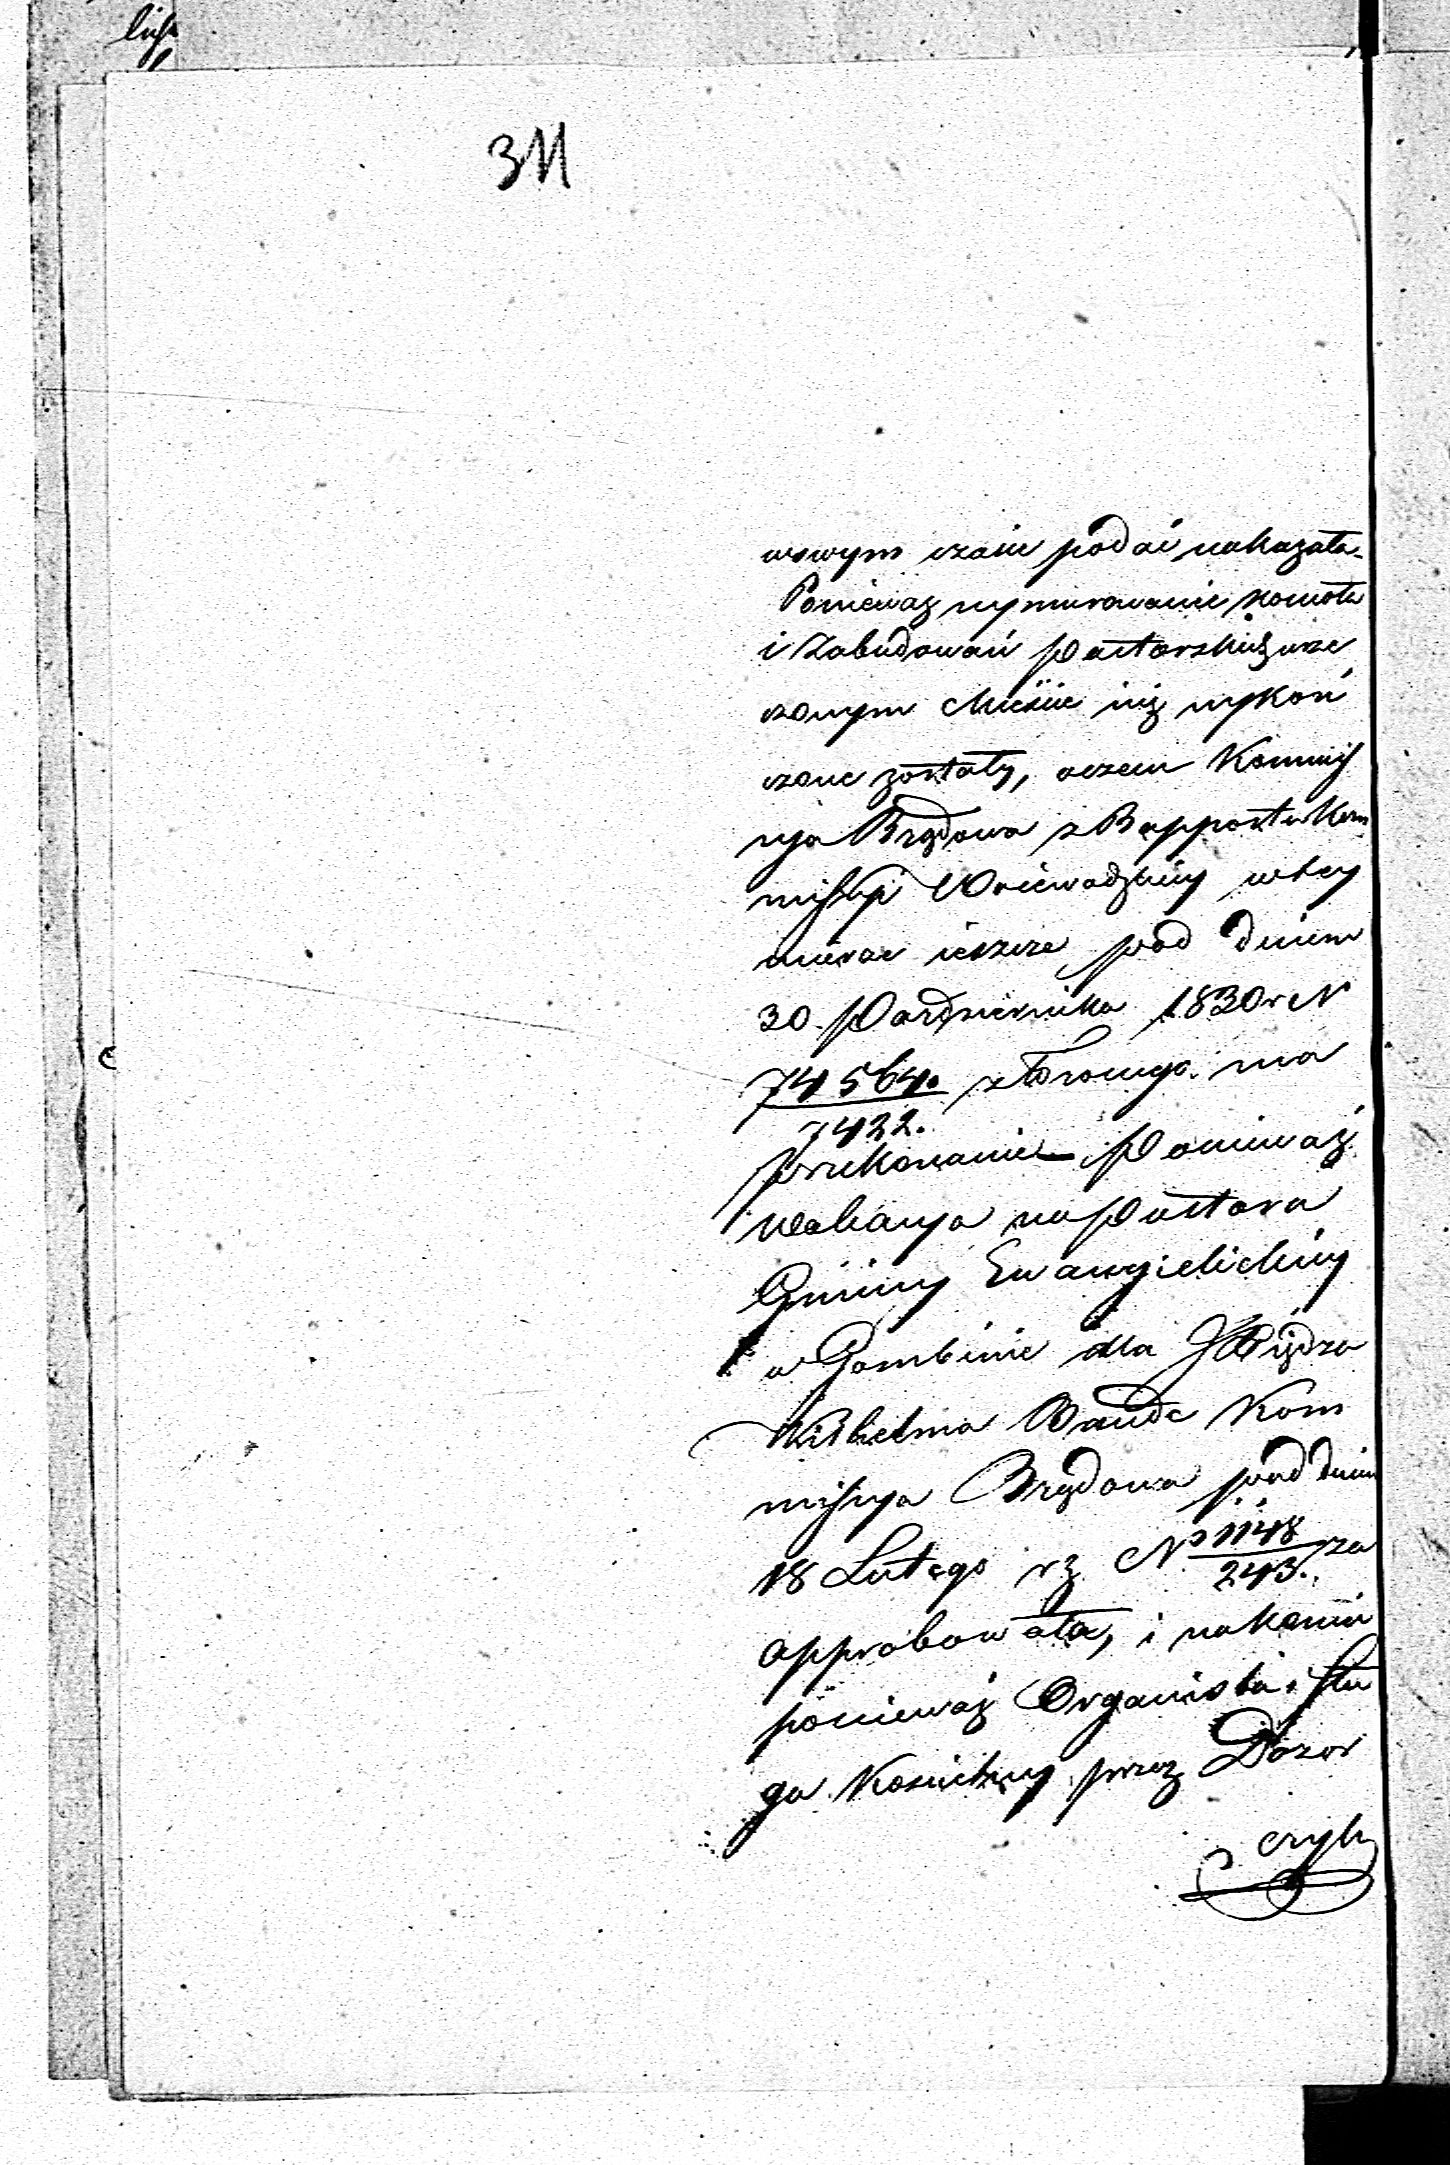 311
wswym czasie podać nakazała.
Ponieważ wymurowanie Kościoła
i Zabudowań Pastorskich wrze
czonym Mieście iuż wykoń
czone zostały, oczem Kommis
sya Rządowa z Rapportu Kom
missyi Woiewodzkiey wtey
mierze ieszcze pod dniem
30. Października 1830 r N
74564./7422. złożonego. ma
przekonanie – Ponieważ
wokacya na Pastora
Gminy Ewangielickiey
w Gombinie dla Xiędza
Wilhelma Kom
missya Rządowa pod dniem
18 Lutego rz No 1148/243. za
approbowała, i nakoniec
ponieważ Organista i Słu
ga Kościelny przez Dozor